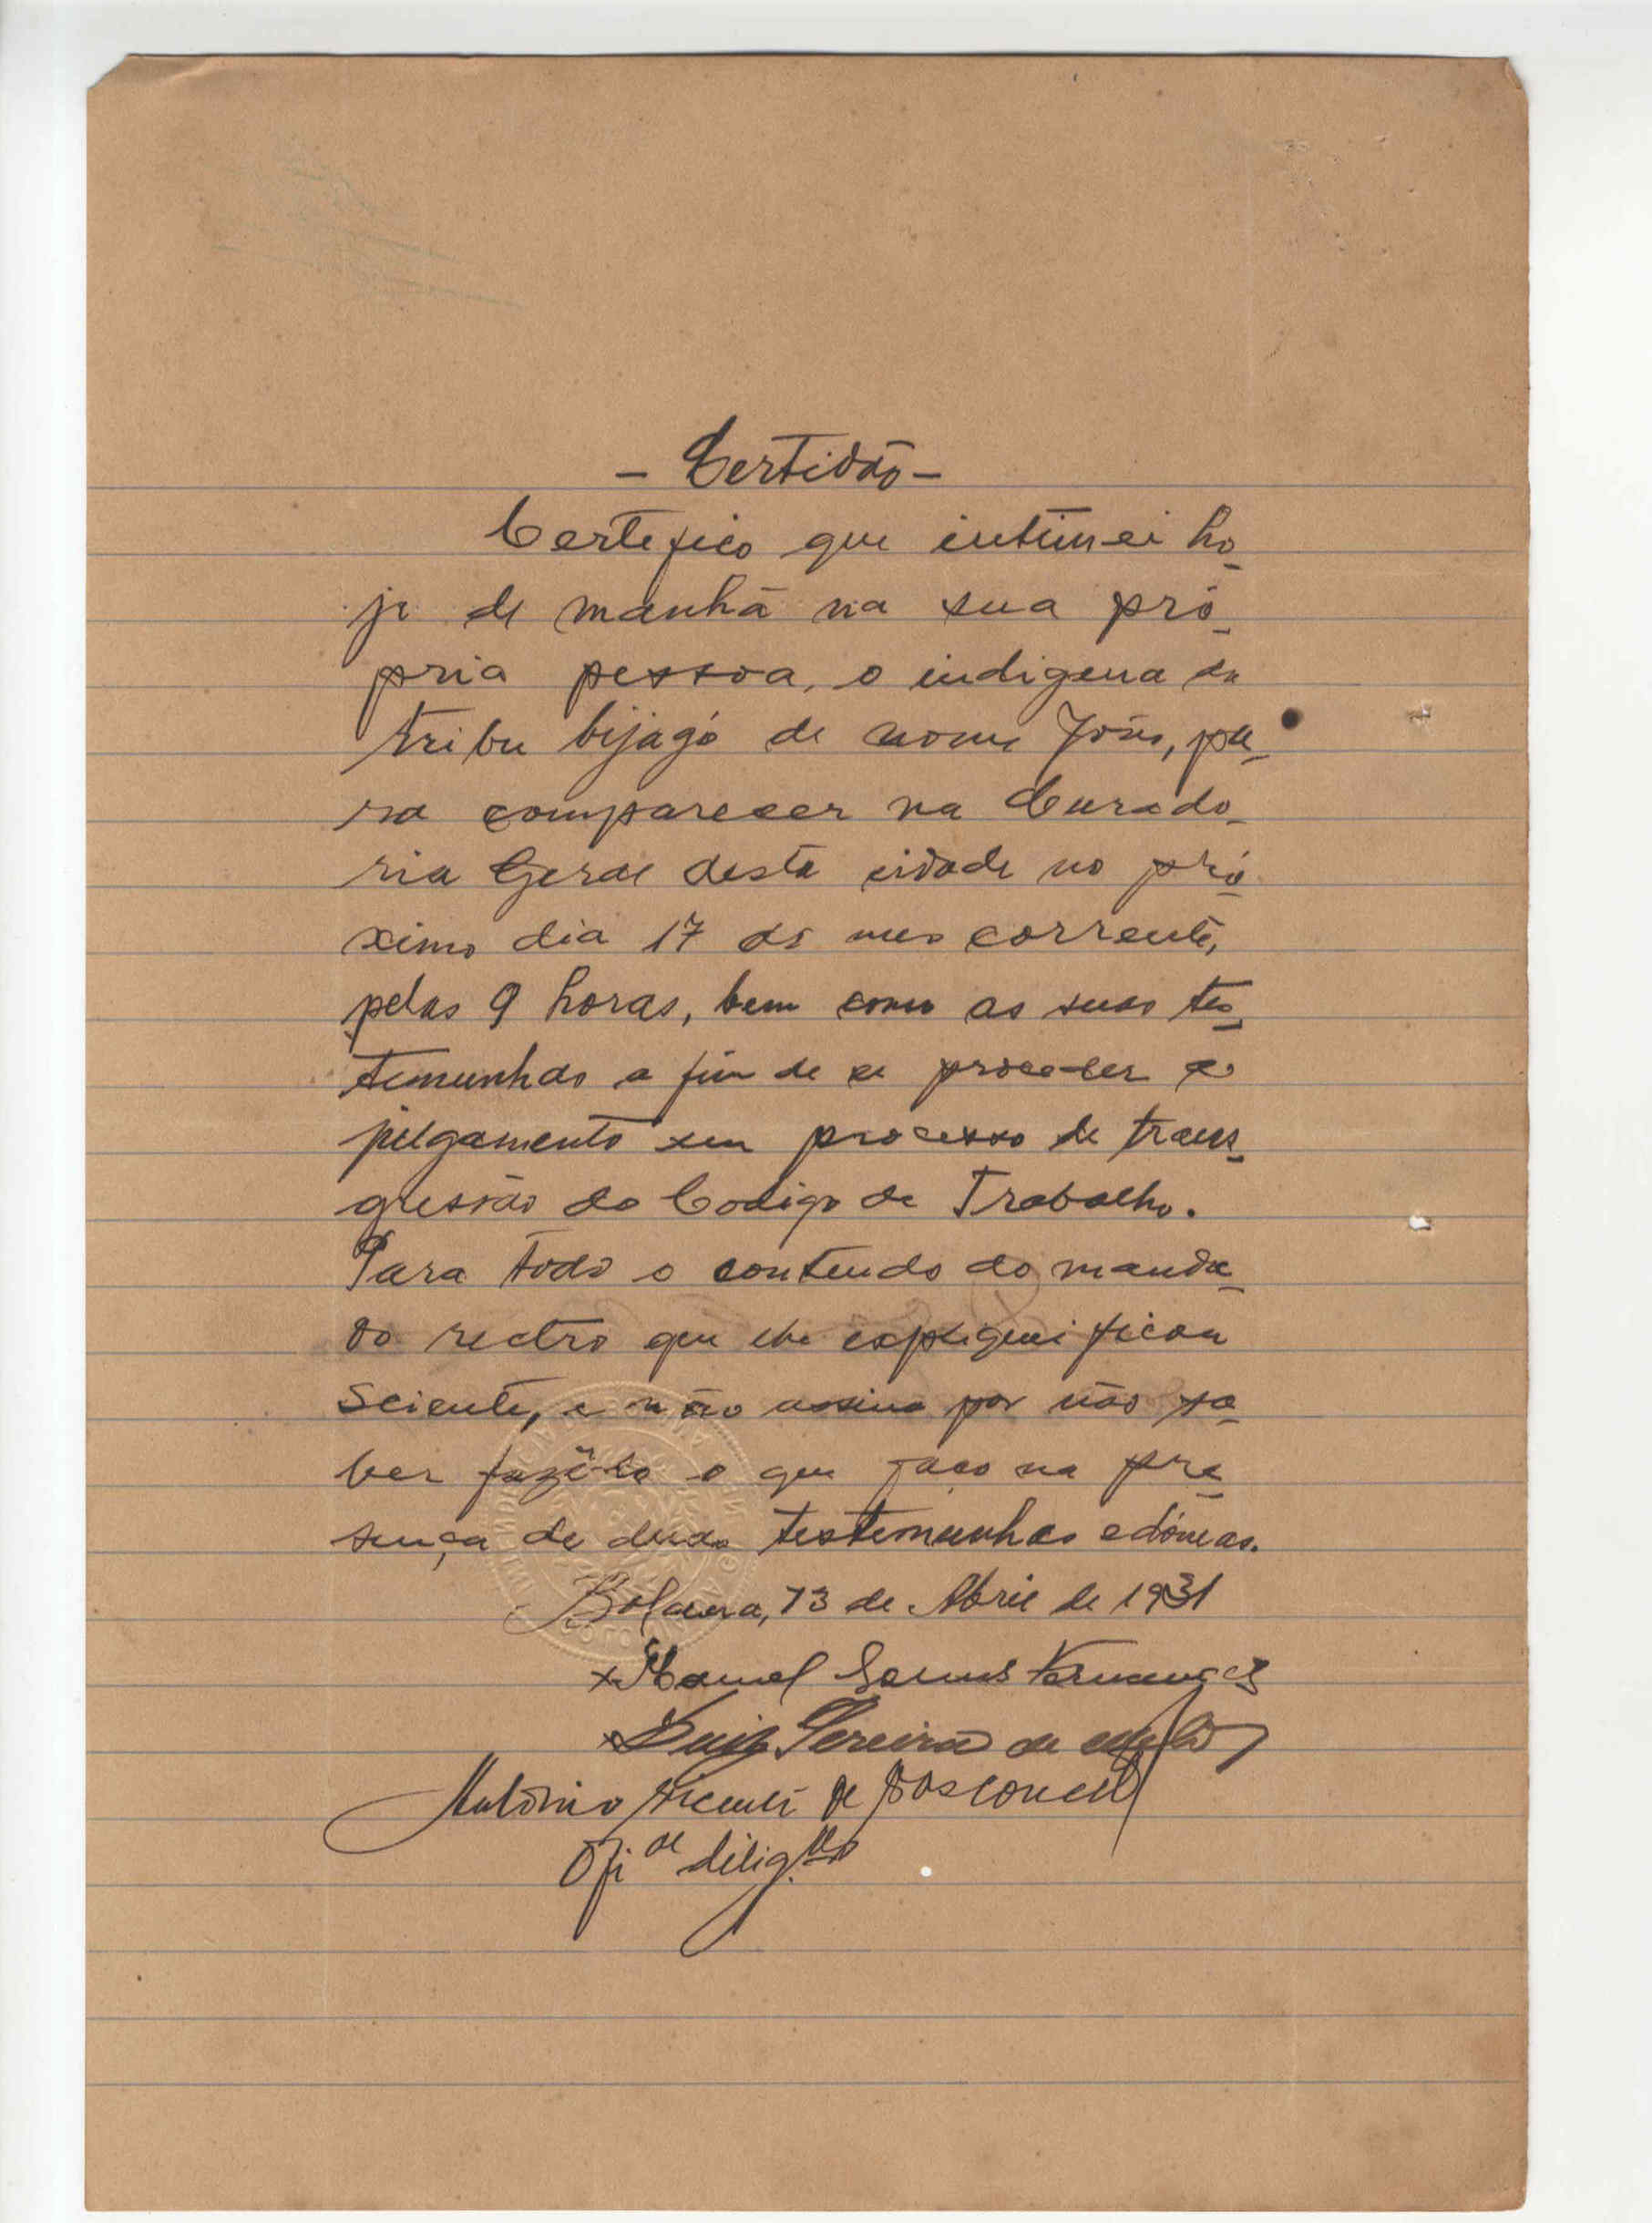 - Certidão -
Certefico que intimei ho-
je de manhã na sua pró-
pria pessoa, o indigena da
tribu bijagó de nome João, pa-
ra comparecer na Curado-
ria Geral desta cidade no pró-
ximo dia 17 do mes corrente,
pelas 9 horas, bem como as suas tes-
temunhas a fim de se proceder ao
julgamento em processo de trans-
gressão do Codigo de Trabalho.
Para todo o conteudo do manda-
do rectro que lhe expliquei ficou
sciente, e não assina por não sa-
ber fazê-lo o que faço na pre-
sença de duas testemunhas edóneas.
Bolama, 13 de Abril de 1931
x Manuel Fernandes
x Luiz Pereira de
António Vicente de Vasconcelos
Ofi al diligas